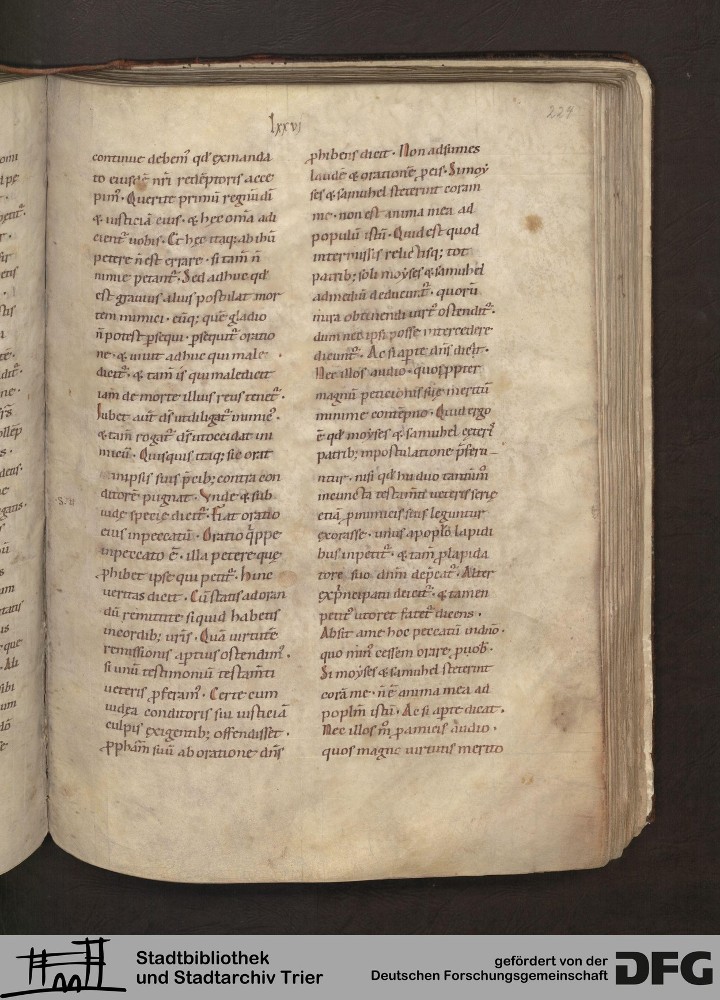 lxxvi
224
continue debem᷒ qd̄ ex manda
to eiusdē nr̄i redēptoris acce
pim᷒. Querite primū regnū dī
& iusticiā eius. & hec om̄a adi
cient᷑ uobis. Et hec itaq; ab ihū
petere ñ est errare. si tam̄ ñ
nimie petant᷑. Sed adhuc qd̄
est grauius alius postulat mor
tem inimici. eūq; quē gladio
ñ potest p̄sequi. p̄sequit᷑ oratio
ne. & uiuit adhuc qui male
dicit᷑. & tam̄ is qui maledicit
iam de morte illius reus tenet᷑.
Iubet aut̄ ds̄ ut diligat᷑ inimic᷒.
& tam̄ rogat᷑ ds̄ ut occidat ini
micū. Quisquis itaq; sic orat
in ipsis suis p̄cib; contra con
ditorē pugnat. Vnde & sub
iude specie dicit᷑. Fiat oratio
eius in peccatū. Oratio q̄ppe
in peccato ē. illa petere que
ꝓhibet ipse qui petit᷑. Hinc
ueritas dicit. Cū statis ad oran
dū remittite si quid habetis
in cordib; ur̄is. Quā uirtutē
remissionis aptius ostendim᷒.
si unū testimoniū testam̄ti
ueteris ꝓferam᷒. Certe cum
iudea conditoris sui iusticiā
culpis exigentib; offendisset.
ꝓpham̄ suū ab oratione dn̄s
ꝓhibens dicit. Non adsumes
laudē & orationē p̄ eis. Si moy
ses & samuhel steterint coram
me. non est anima mea ad
populū istū. Quid est quod
intermissis relictisq; tot
patrib; soli moyses & samuhel
ad mediū deducunt᷑. quorū
mira obtinendi uirt᷒ ostendit᷑.
dum nec ipsi posse intercedere
dicunt᷑. Ac si aperte dn̄s dicat.
Nec illos audio. quos ꝓpter
magnū peticionis sue meritū
minime contēpno. Quid ergo
ē qd̄ moyses & samuhel ceteris
patrib; in postulatione p̄ferun
tur. nisi qd̄ hii duo tantūm᷒
in cuncta testam̄ti ueteris serie
etiā p̄ inimicis suis leguntur
exorasse. unus a poplō lapidi
bus inpetit᷑. & tam̄ p̄ lapida
tore suo dnm̄ dep̄cat᷑. Alter
ex p̄ncipatu deicit᷑. & tamen
petit᷒ ut oret fatet᷑ dicens.
Absit a me hoc peccatū in dnō.
quo min᷒ cessem orare p̄ uob᷒.
Si moyses & samuhel steterint
corā me. ñ ē anima mea ad
poplm̄ istū. Ac si apte dicat.
Nec illos m̊ p̄ amicis audio.
quos magne uirtutis merito
Stadtbibliothek
und Stadtarchiv Trier
gefördert von der
Deutschen Forschungsgemeinschaft
DFG